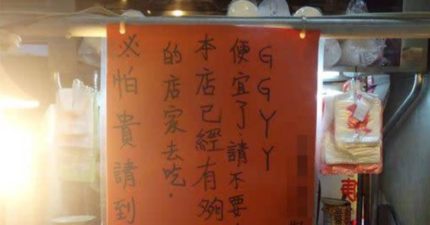 ※怕貴請到
的店家去吃.
本店已經有夠
便宜了,請不要
GGYY